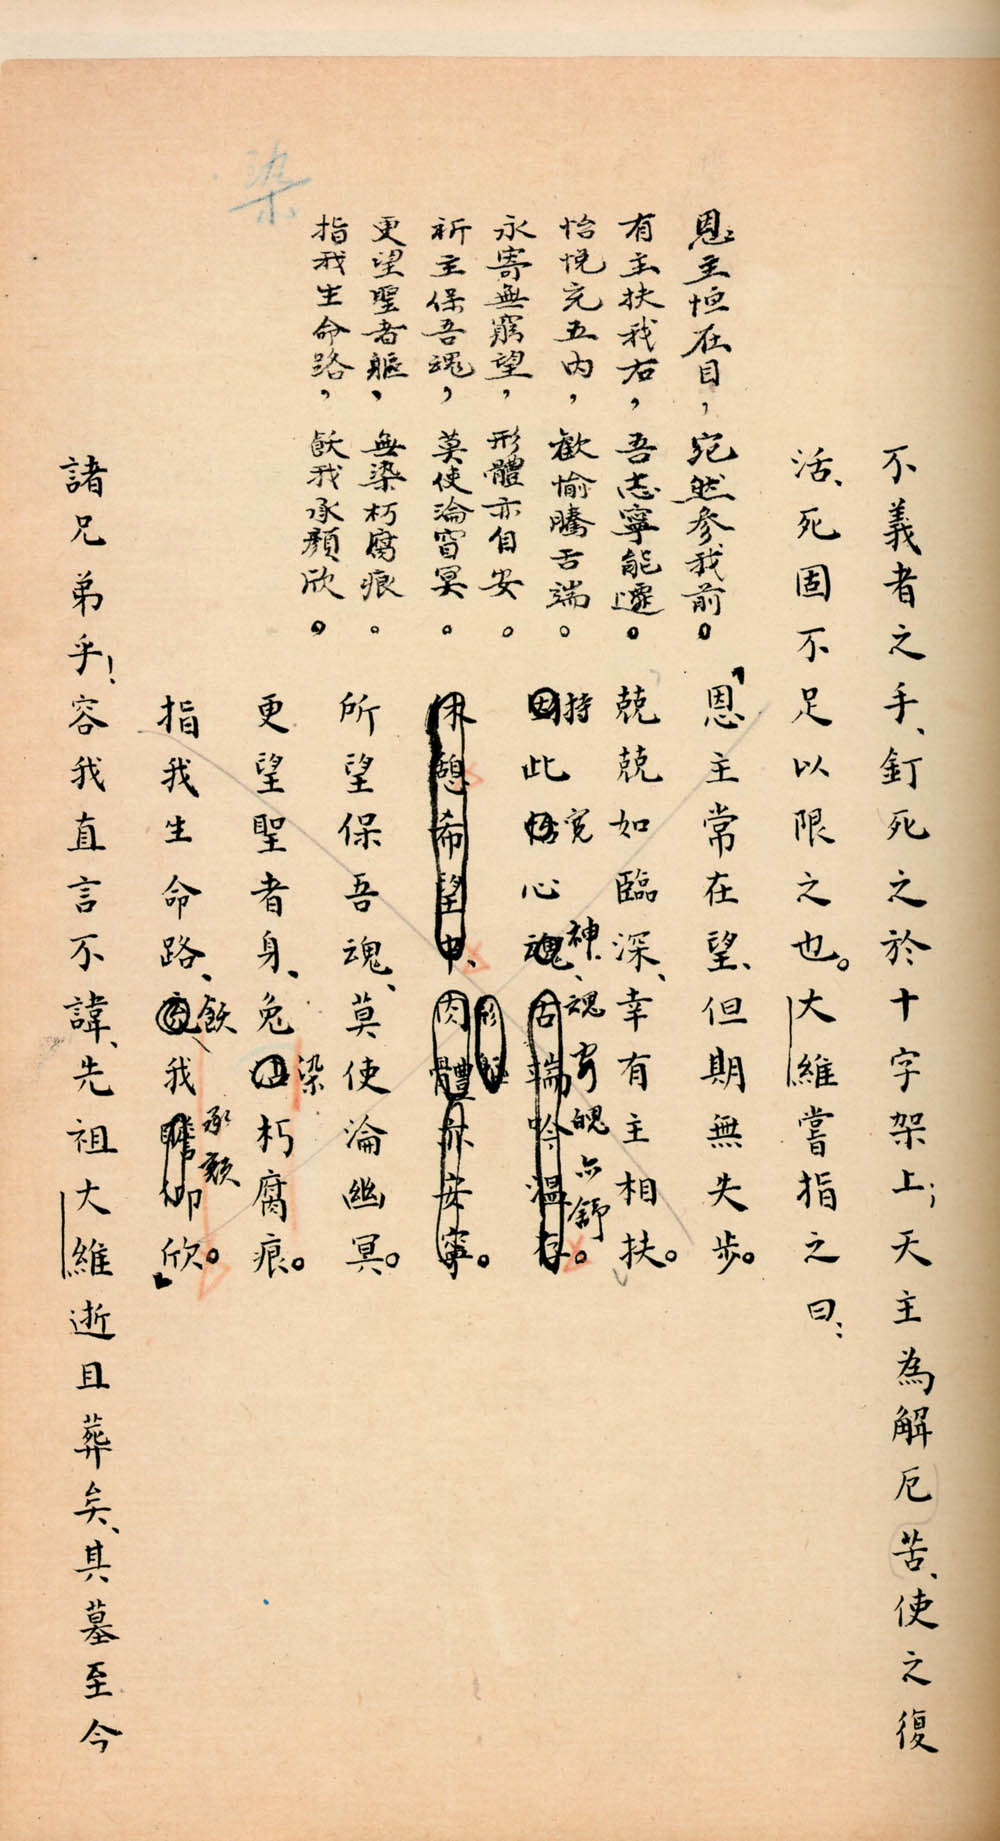 不義者之手、釘死之於十字架上；天主為解厄苦、使之復
活、死固不足以限之也。大維嘗指之曰：
恩主恒在目，宛然參我前。
有主扶我右，吾志寧能遷。
怡悅充五內，歡愉騰舌端。
永寄無窮望，形體亦自安。
祈主保吾魂，莫使淪窅冥。
更望聖者軀、無染朽腐痕。
指我生命路，飫我承顏欣。
恩主常在望、但期無失步。
兢兢如臨深、幸有主相扶。
持 寬 神、魂 寄 魄 亦 舒
因此 心魂、舌端吟溫存。
形
休憩希望中、肉體亦安寧。
所望保吾魂、莫使淪幽冥。
染
更望聖者身、免 朽腐痕。
飫 承顏
指我生命路、我 仰欣。
染
諸兄弟乎！容我直言不諱、先祖大維逝且葬矣、其墓至今